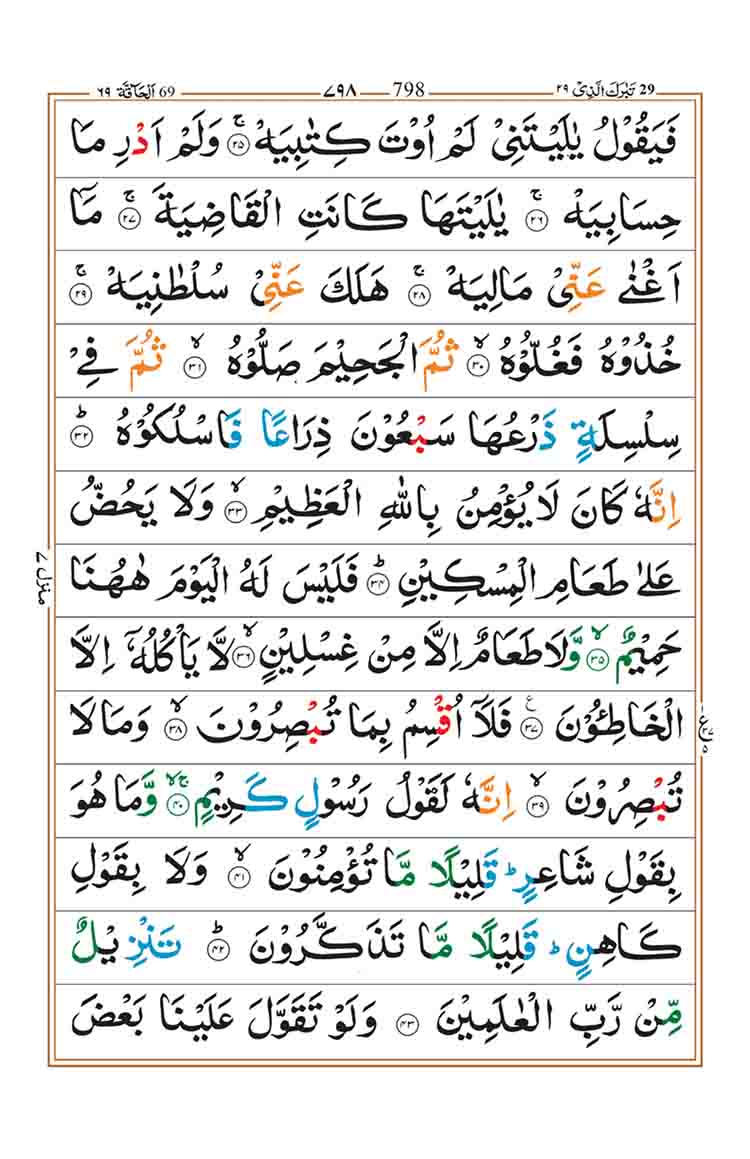 29 تَبٰرَكَ الَّذِیْ ٢٩ 798 ٧٩٨ 69 اَلْحَآقَّة ٦٩
فَیَقُوْلُ یٰلَیْتَنِیْ لَمْ اُوْتَ كِتٰبِیَهْ ۚ‏﴿۲۵﴾ وَلَمْ اَدْرِ مَا
حِسَابِیَهْ ۚ‏﴿۲۶﴾ یٰلَیْتَهَا كَانَتِ الْقَاضِیَةَ ۚ‏﴿۲۷﴾ مَاۤ
اَغْنٰی عَنِّیْ مَالِیَهْ ۚ‏﴿۲۸﴾ هَلَكَ عَنِّیْ سُلْطٰنِیَهْ ۚ‏﴿۲۹﴾
خُذُوْهُ فَغُلُّوْهُ ۙ‏﴿۳۰﴾ ثُمَّ الْجَحِیْمَ صَلُّوْهُ ۙ‏﴿۳۱﴾ ثُمَّ فِیْ
سِلْسِلَةٍ ذَرْعُهَا سَبْعُوْنَ ذِرَاعًا فَاسْلُكُوْهُ ؕ‏﴿۳۲﴾
اِنَّهٗ كَانَ لَا یُؤْمِنُ بِاللّٰهِ الْعَظِیْمِ ۙ‏﴿۳۳﴾ وَلَا یَحُضُّ
عَلٰی طَعَامِ الْمِسْكِیْنِ ؕ‏﴿۳۴﴾ فَلَیْسَ لَهُ الْیَوْمَ هٰهُنَا
حَمِیْمٌ ۙ‏﴿۳۵﴾ وَّلَا طَعَامٌ اِلَّا مِنْ غِسْلِیْنٍ ۙ‏﴿۳۶﴾ لَّا یَاْكُلُهٗۤ اِلَّا
الْخَاطِـُٔوْنَ ع‏﴿۳۷﴾ فَلَاۤ اُقْسِمُ بِمَا تُبْصِرُوْنَ ۙ‏﴿۳۸﴾ وَمَا لَا
تُبْصِرُوْنَ ۙ‏﴿۳۹﴾ اِنَّهٗ لَقَوْلُ رَسُوْلٍ كَرِیْمٍ ۚۙ‏﴿۴۰﴾ وَّمَا هُوَ
بِقَوْلِ شَاعِرٍ ؕ قَلِیْلًا مَّا تُؤْمِنُوْنَ ۙ‏﴿۴۱﴾ وَلَا بِقَوْلِ
كَاهِنٍ ؕ قَلِیْلًا مَّا تَذَكَّرُوْنَ ؕ‏﴿۴۲﴾ تَنْزِیْلٌ
مِّنْ رَّبِّ الْعٰلَمِیْنَ ‏﴿۴۳﴾ وَلَوْ تَقَوَّلَ عَلَیْنَا بَعْضَ
منزل ٧